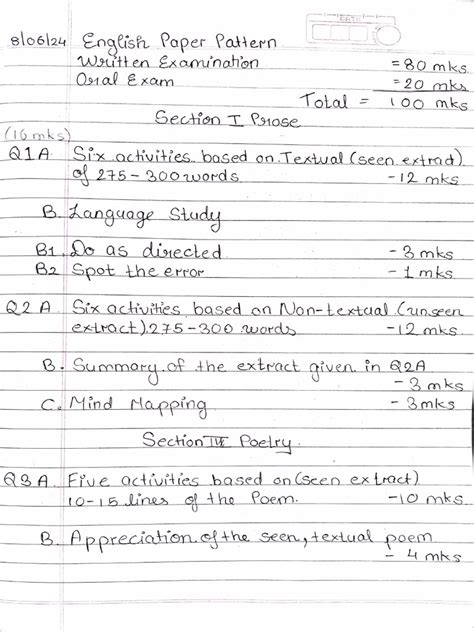 DATE
8/06/24 English Paper Pattern
Written Examination = 80 mks
Oral Exam = 20 mks
Total = 100 mks
Section I Prose
(16 mks)
Q1 A Six activities based on Textual (seen extract)
of 275-300 words -12 mks
B. Language Study
B1. Do as directed -3 mks
B2 Spot the error -1 mks
Q2 A Six activities based on Non-textual (unseen
extract) 275-300 words -12 mks
B. Summary of the extract given in Q2A
-3 mks
C. Mind Mapping -3 mks
Section Poetry
Q3 A Five activities based on (seen extract)
10-15 lines of the Poem. -10 mks
B. Appreciation of the seen, textual poem
-4 mks